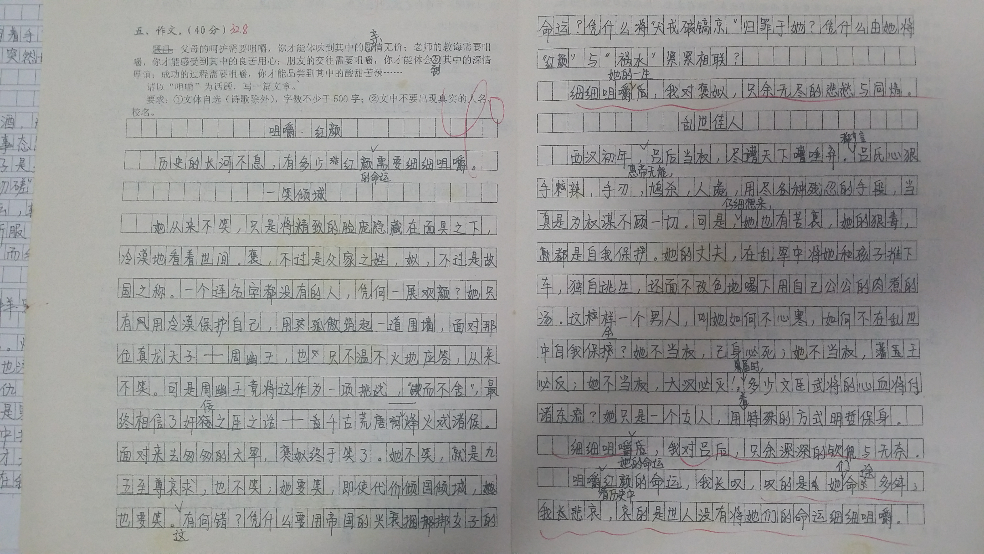 五、作文。(40分)
题目 父母的呵护需要咀嚼，你才能体味到其中的亲情无价；老师的教诲需要咀
嚼，你才能感受到其中的良苦用心；朋友的交往需要咀嚼，你才能体会到其中的深情
厚谊；成功的过程需要咀嚼，你才能品尝到其中的酸甜苦辣……
请以“咀嚼”为话题，写一篇文章。
要求：①文体自选（诗歌除外），字数不少于500字；②文中不要出现真实的人名、
校名。
咀嚼 红颜
历史的长河不息，有多少红颜的命运需要细细咀嚼。
一笑倾城
她从来不笑，只是将精致的脸庞隐藏在面具之下，
冷漠地看着世间。褒，不过是父家之姓，姒，不过是故
国之称。一个连名字都没有的人，凭何一展欢颜？她只
有用用冷漠保护自己，用孤傲筑起一道围墙，面对那
位真龙天子——周幽王，也只不温不火地应答，从来
不笑。可是周幽王竟将这作为一项挑战，“锲而不舍”，最
终相信了奸佞之臣之话——首千古荒唐烽火戏诸侯。
面对来去匆匆的大军，褒姒终于笑了。她不笑，就是九
五至尊哀求，也不笑；她要笑，即使代价倾国倾城，
也要笑。这有何错？凭什么要用帝国的兴衰捆绑女子的
命运？凭什么将“犬戎破镐京”归罪于她？凭什么由她将
“红颜”与“祸水”紧紧相联？
细细咀嚼她的一生后，我对褒姒，只余无尽的悲愁与同情。
乱世佳人
西汉初年，惠帝无能，吕后当权，尽遭天下唾弃。吕氏心狠
手辣，手刃，鸩杀，人彘，用尽各种残忍的手段，当
真是为权谋不顾一切。可是，仔细想来，她也有苦衷，她的狠毒，
都是自我保护。她的丈夫，在乱军中将她和孩子推下
车，独自逃生，还面不改色地喝下用自己公公的肉煮的
汤。这样一个男人，叫她如何不心寒，如何不在乱世
中自我保护？她不当权，己身必死；她不当权，诸王
必反；她不当权，大汉必灭，多少文臣武将的心血将付
诸东流？她只是一个女人，用特殊的方式明哲保身。
细细咀嚼后，我对吕后，只余深深的钦佩与无奈。
咀嚼红颜的命运，我长叹，叹的是她命多舛；
我长悲哀，哀的是世人没有将她们的命运细细咀嚼。